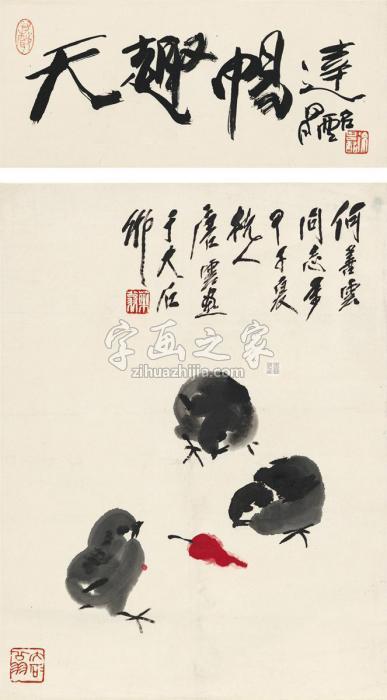 天趣暢達
何善雲
同志屬
甲子夏
杭人
唐雲畫
于大石
字画之家
zihuazhijia.com